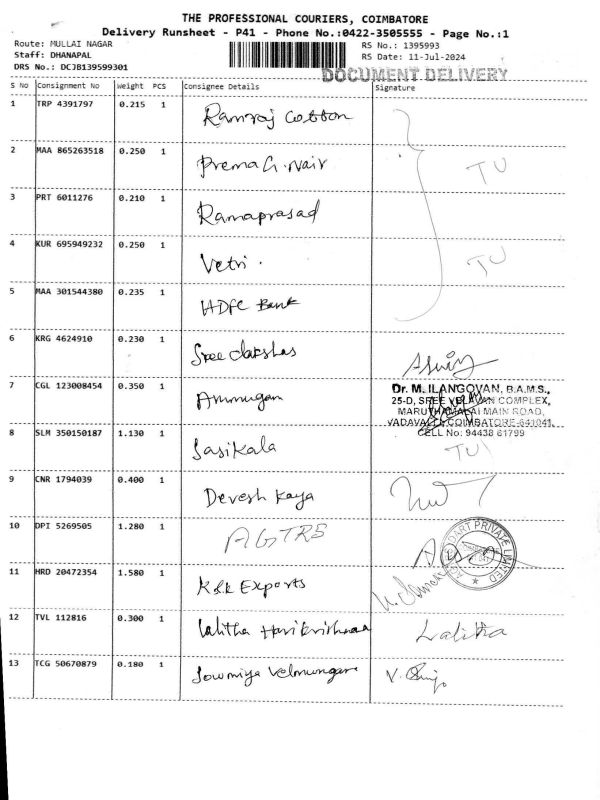 THE PROFESSIONAL COURIERS, COIMBATORE
Delivery Runsheet - P41 - Phone No.:0422-3505555 - Page No.:1
Route: MULLAI NAGAR
Staff: DHANAPAL
DRS No.: DCJB139599301
RS No.: 1395993
RS Date: 11-Jul-2024
DOCUMENT DELIVERY
S No Consignment No Weight PCS Consignee Details Signature
1 TRP 4391797 0.215 1 Ramraj Cotton
2 MAA 865263518 0.250 1 Prema G. Nair TU
3 PRT 6011276 0.210 1 Ramaprasad
4 KUR 695949232 0.250 1 Vetri . TU
5 MAA 301544380 0.235 1 HDFC Bank
6 KRG 4624910 0.230 1 Sree
7 CGL 123008454 0.350 1 Arumugam
Dr. M. ILANGOVAN, B.A.M.S.,
25-D, SREE VELAVAN COMPLEX,
MARUTHAMALAI MAIN ROAD,
VADAVALLI, COIMBATORE-641041.
CELL No: 94438 61799
8 SLM 350150187 1.130 1 Sasikala TU
9 CNR 1794039 0.400 1 Devesh Kaya
10 DPI 5269505 1.280 1 AGTRS
PRIVATE LIMITED
11 HRD 20472354 1.580 1 K&K Exports
12 TVL 112816 0.300 1 Lalitha Harikrishnaa Lalitha
13 TCG 50670879 0.180 1 Sowmiya Velmurugan